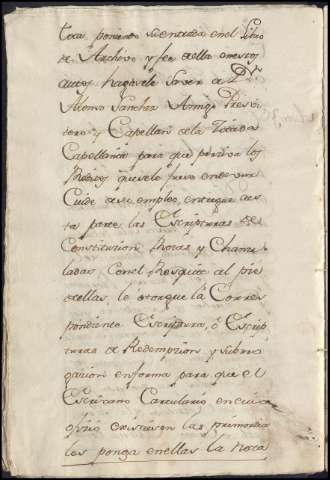 poniendo su entrada en el Libro
de Archivo y fee de ella en estos
autos hagasele saver a Dn
Alonso Sanchez Presvi
tero y Capellan de la
Capellania para que perciva los
Cuide de su empleo, entregue a es
ta parte las Escripturas de
Constituzion Notas y Chanze
ladas, con el Resguito al pie
de ellas, le otorgue la Corres
pondiente Escriptura, o Escrip
turas de Redempzion y subrro
gazion en forma para que el
Escrivano Cartulario en cuio
ofizio existiesen las primordia
les ponga en ellas la nota